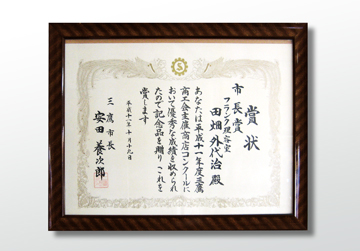 賞状
市長賞
フランク理容室
田畑外代治殿
あなたは平成十一年度三鷹
商工会主催商店コンクールに
おいて優秀な成績を収められ
たので記念品を贈り これを
賞します
平成十一年十月十九日
三鷹市長
安田養次郎